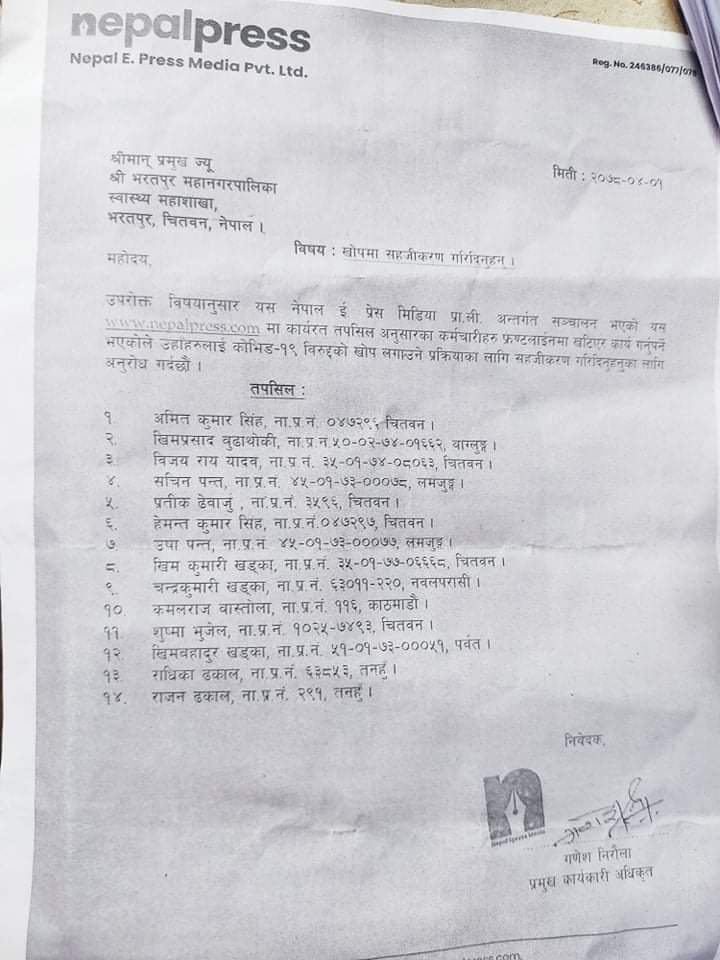 nepalpress
Nepal E. Press Media Pvt. Ltd.
Reg. No. 246386/077/078
श्रीमान् प्रमुख ज्यू
श्री भरतपुर महानगरपालिका
स्वास्थ्य महाशाखा,
भरतपुर, चितवन, नेपाल ।
मिती : २०७८-०४-०१
विषय : खोपमा सहजीकरण गरिदिनुहुन ।
महोदय,
उपरोक्त विषयानुसार यस नेपाल ई. प्रेस मिडिया प्रा.ली. अन्तर्गत सञ्चालन भएको यस
www.nepalpress.com मा कार्यरत तपसिल अनुसारका कर्मचारीहरु फ्रण्टलाईनमा खटिएर कार्य गर्नुपर्ने
भएकोले उहाँहरुलाई कोभिड-१९ विरुद्दको खोप लगाउने प्रक्रियाका लागि सहजीकरण गरिदिनुहुनका लागि
अनुरोध गर्दछौ ।
तपसिल :
१. अमित कुमार सिंह, ना.प्र.नं. ०४७२९६ चितवन ।
२. खिमप्रसाद वुढाथोकी, ना.प्र.नं.५०-०२-७४-०१६६२, वाग्लुङ्ग ।
३. विजय राय यादव, ना.प्र.नं. ३५-०१-७४-०८०६३, चितवन ।
४. सचिन पन्त, ना.प्र.नं. ४५-०१-७३-०००७८, लमजुङ्ग ।
५. प्रतीक ढेवाजुं , ना.प्र.नं. ३५९६, चितवन ।
६. हेमन्त कुमार सिंह, ना.प्र.नं.०४७२९७, चितवन ।
७. उषा पन्त, ना.प्र.नं. ४५-०१-७३-०००७७, लमजुङ्ग ।
८. खिम कुमारी खड्का, ना.प्र.नं. ३५-०१-७७-०६६६८, चितवन ।
९. चन्द्रकुमारी खड्का, ना.प्र.नं. ६३०११-२२०, नवलपरासी ।
१०. कमलराज वास्तोला, ना.प्र.नं. ११६, काठमाडौ ।
११. शुष्मा भुजेल, ना.प्र.नं. १०२५-७४९३, चितवन ।
१२. खिमवहादुर खड्का, ना.प्र.नं. ५१-०१-७३-०००५१, पर्वत ।
१३. राधिका ढकाल, ना.प्र.नं. ६३८५३, तनहुँ ।
१४. राजन ढकाल, ना.प्र.नं. २९१, तनहुँ ।
निवेदक,
गणेश निरौला
प्रमुख कार्यकारी अधिकृत